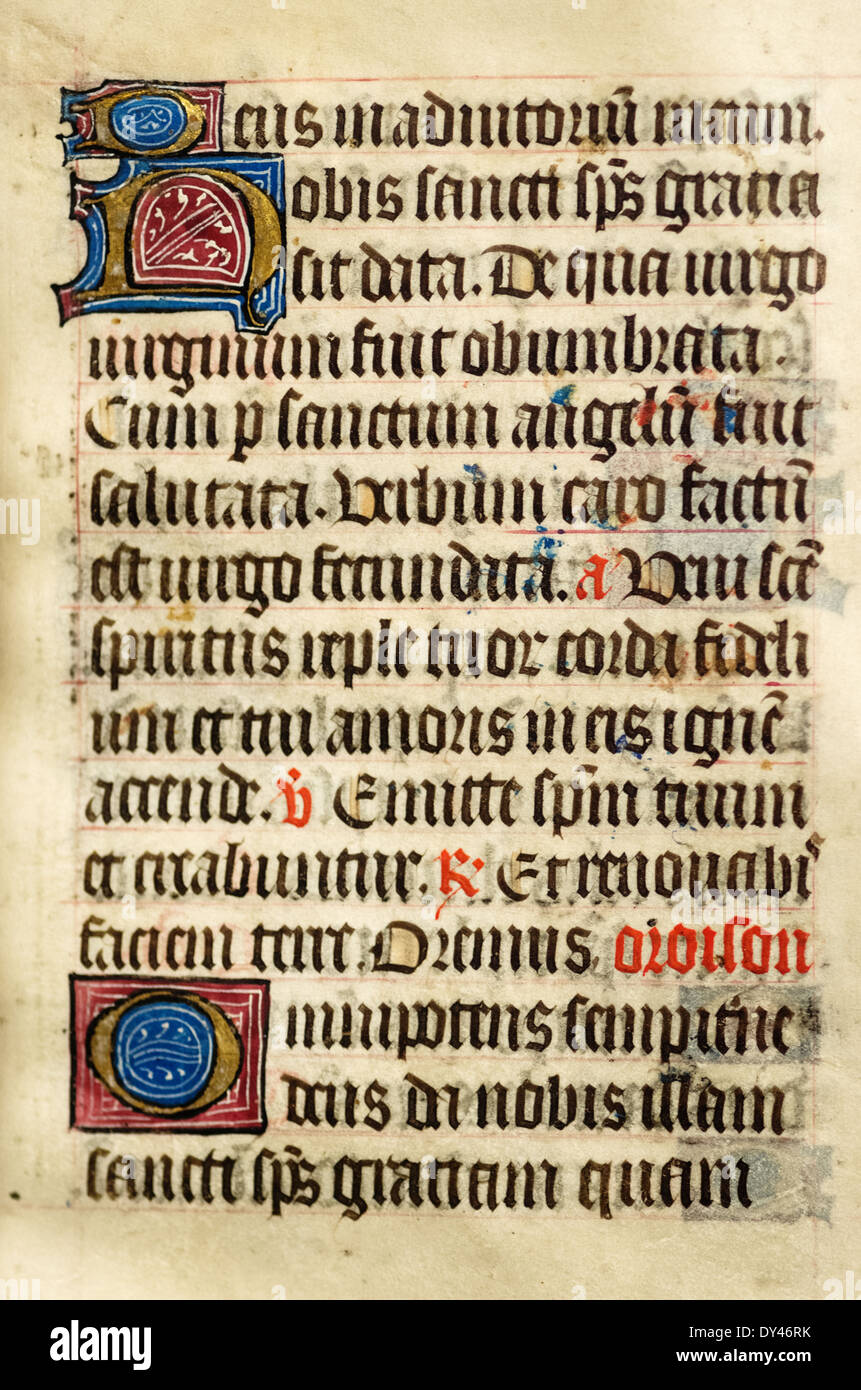 Deus in adiutoriũ meum.
Nobis sancti sp̃s gratia
sit data. De qua uirgo
uirginum fuit obumbrata.
Cum p sanctum angelũ fuit
salutata. Verbum caro factũ
est uirgo fecundata. a Veni scẽ
spiritus reple tuor corda fideli
um et tui amoris in eis ignẽ
accende. v̄ Emitte sp̃m tuum
et creabuntur. ℟ Et renouabis
faciem terre. Oremus. oroison
Omnipotens sempiterne
deus da nobis illam
sancti sp̃s gratiam quam
alamy
Image ID: DY46RK
www.alamy.com